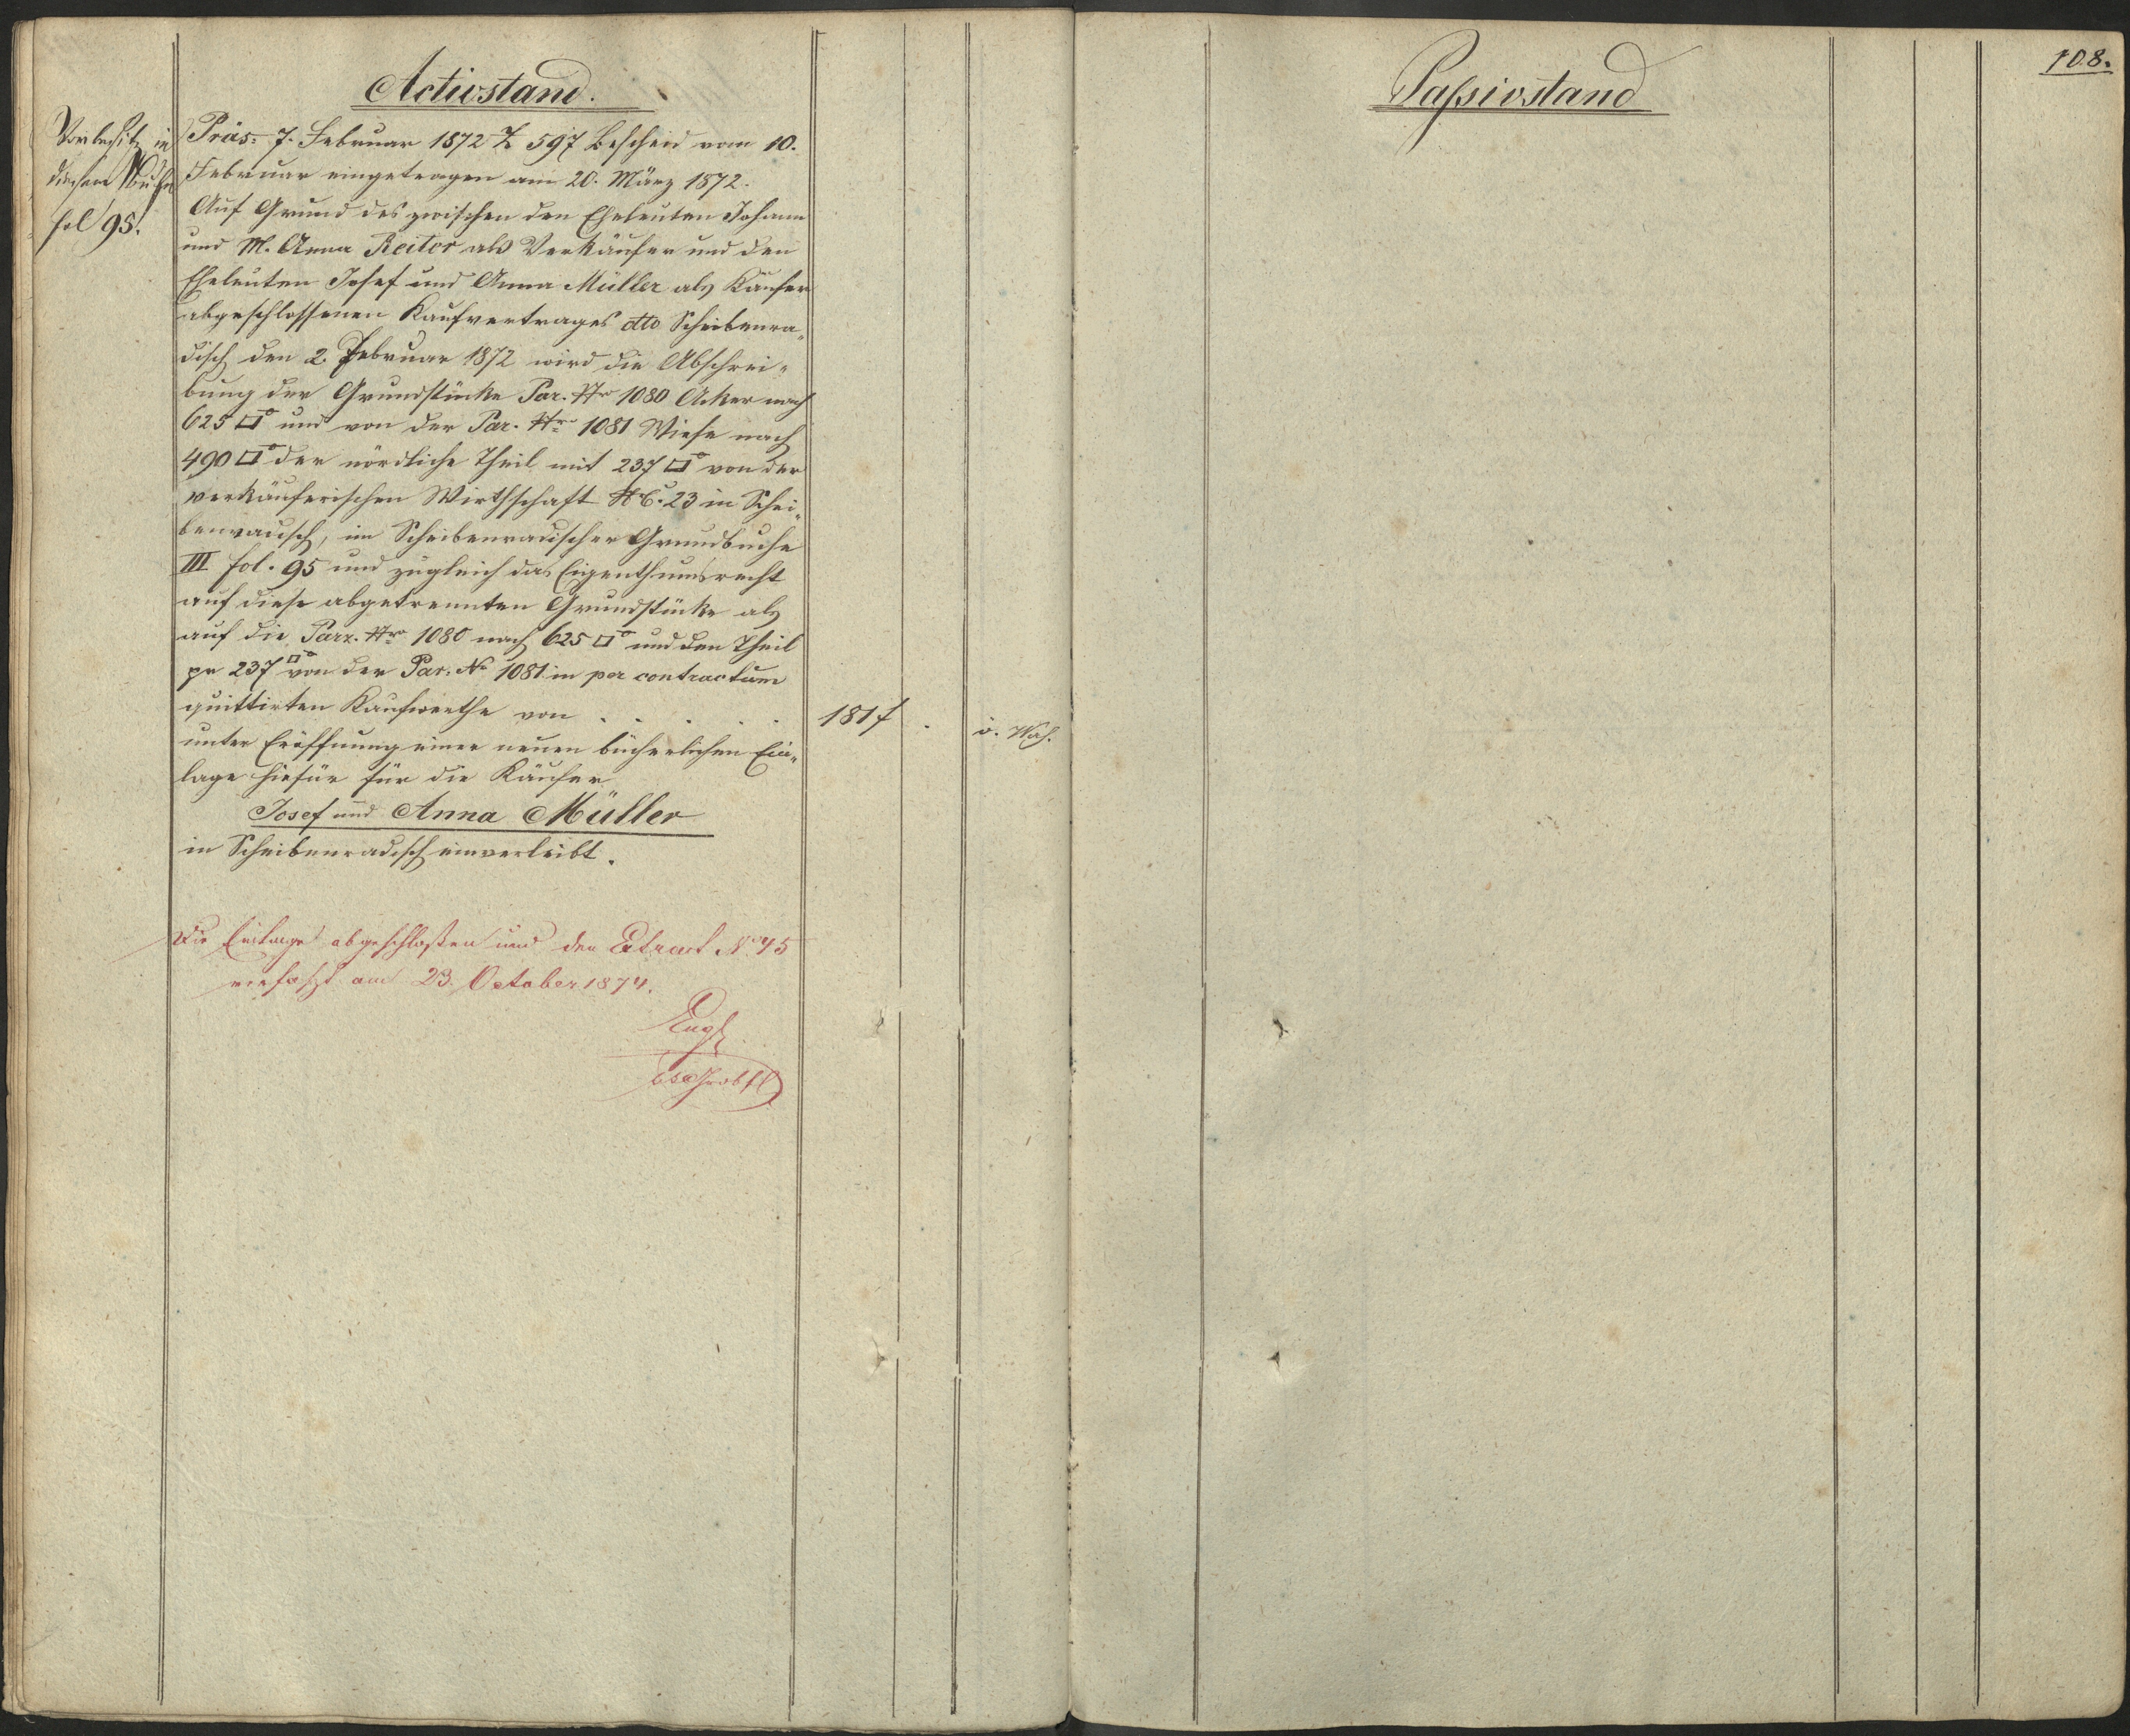 Activstand.
Vorbesitz in
diesem Buche
fol 95.
Präs. 7. Februar 1872 Z 597 Bescheid vom 10.
Februar eingetragen am 20. März 1872.
Auf Grund des zwischen den Eheleuten Johann
und M. Anna Reiter als Verkäufer und den
Eheleuten Josef und Anna Müller als Käufer
abgeschlossenen Kaufvertrages dto Scheibenra„
disch den 2. Februar 1872 wird die Abschrei„
bung der Grundstücke Par. Nro 1080 Acker nach
625 □° und von der Par. Nro 1081 Wiese nach
490 □° der nördliche Theil mit 237 □° von der
verkäuferischen Wirthschaft NC. 23 in Schei„
benradisch, im Scheibenradischer Grundbuche
III fol. 95 und zugleich das Eigenthumsrecht
auf diese abgetrennten Grundstücke als
auf die Parz. Nro 1080 nach 625 □° und den Theil
pr 237 □° von der Par. No 1081 im per contractum
quittirten Kaufwerthe von . . . . . 181 f . ö. Wäh.
unter Eröffnung einer neuen bücherlichen Ein„
lage hiefür für die Käufer
Josef und Anna Müller
in Scheibenradisch einverleibt.
Die Einlage abgeschloßen und den Extract No 45
verfaßt am 23. October 1874.
Paßivstand
108.